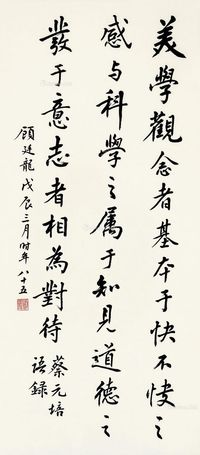 美學觀念者基本于快不快之
感与科學之属于知見道德之
發于意志者相為對待
蔡元培
語録
顧廷龍戊辰三月时年八十五